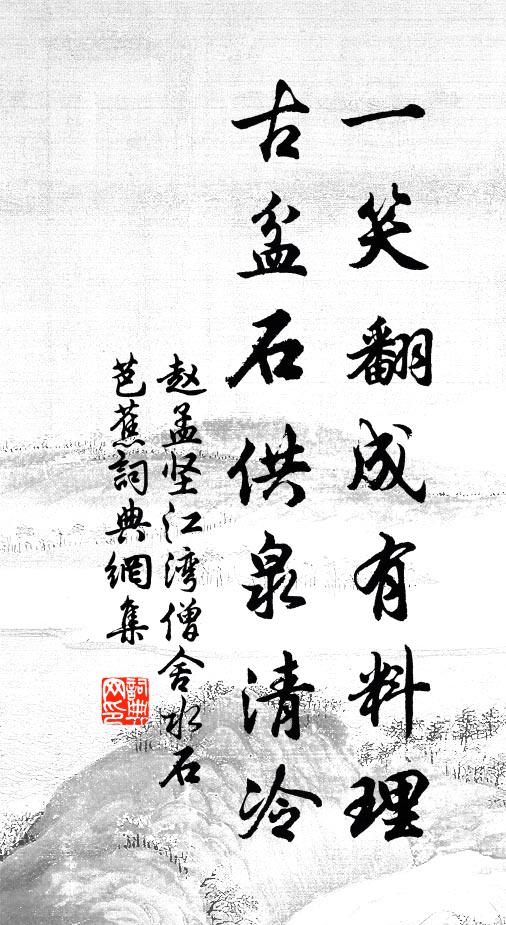 一笑翻成有料理
古盆石供泉清冷
赵孟坚江湾僧舍水石
芭蕉詞典網集
詞典網印